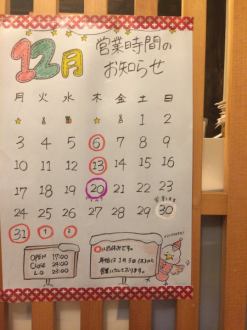 12月 営業時間の
お知らせ
月 火 水 木 金 土 日
1 2
3 4 5 6 7 8 9
10 11 12 13 14 15 16
17 18 19 20 21 22 23
24 25 26 27 28 29 30
31 1 2
OPEN 17:00
Close 24:00
L.O 23:00
○はお休みです。
年始は1月3日(木)から
営業いたしております。